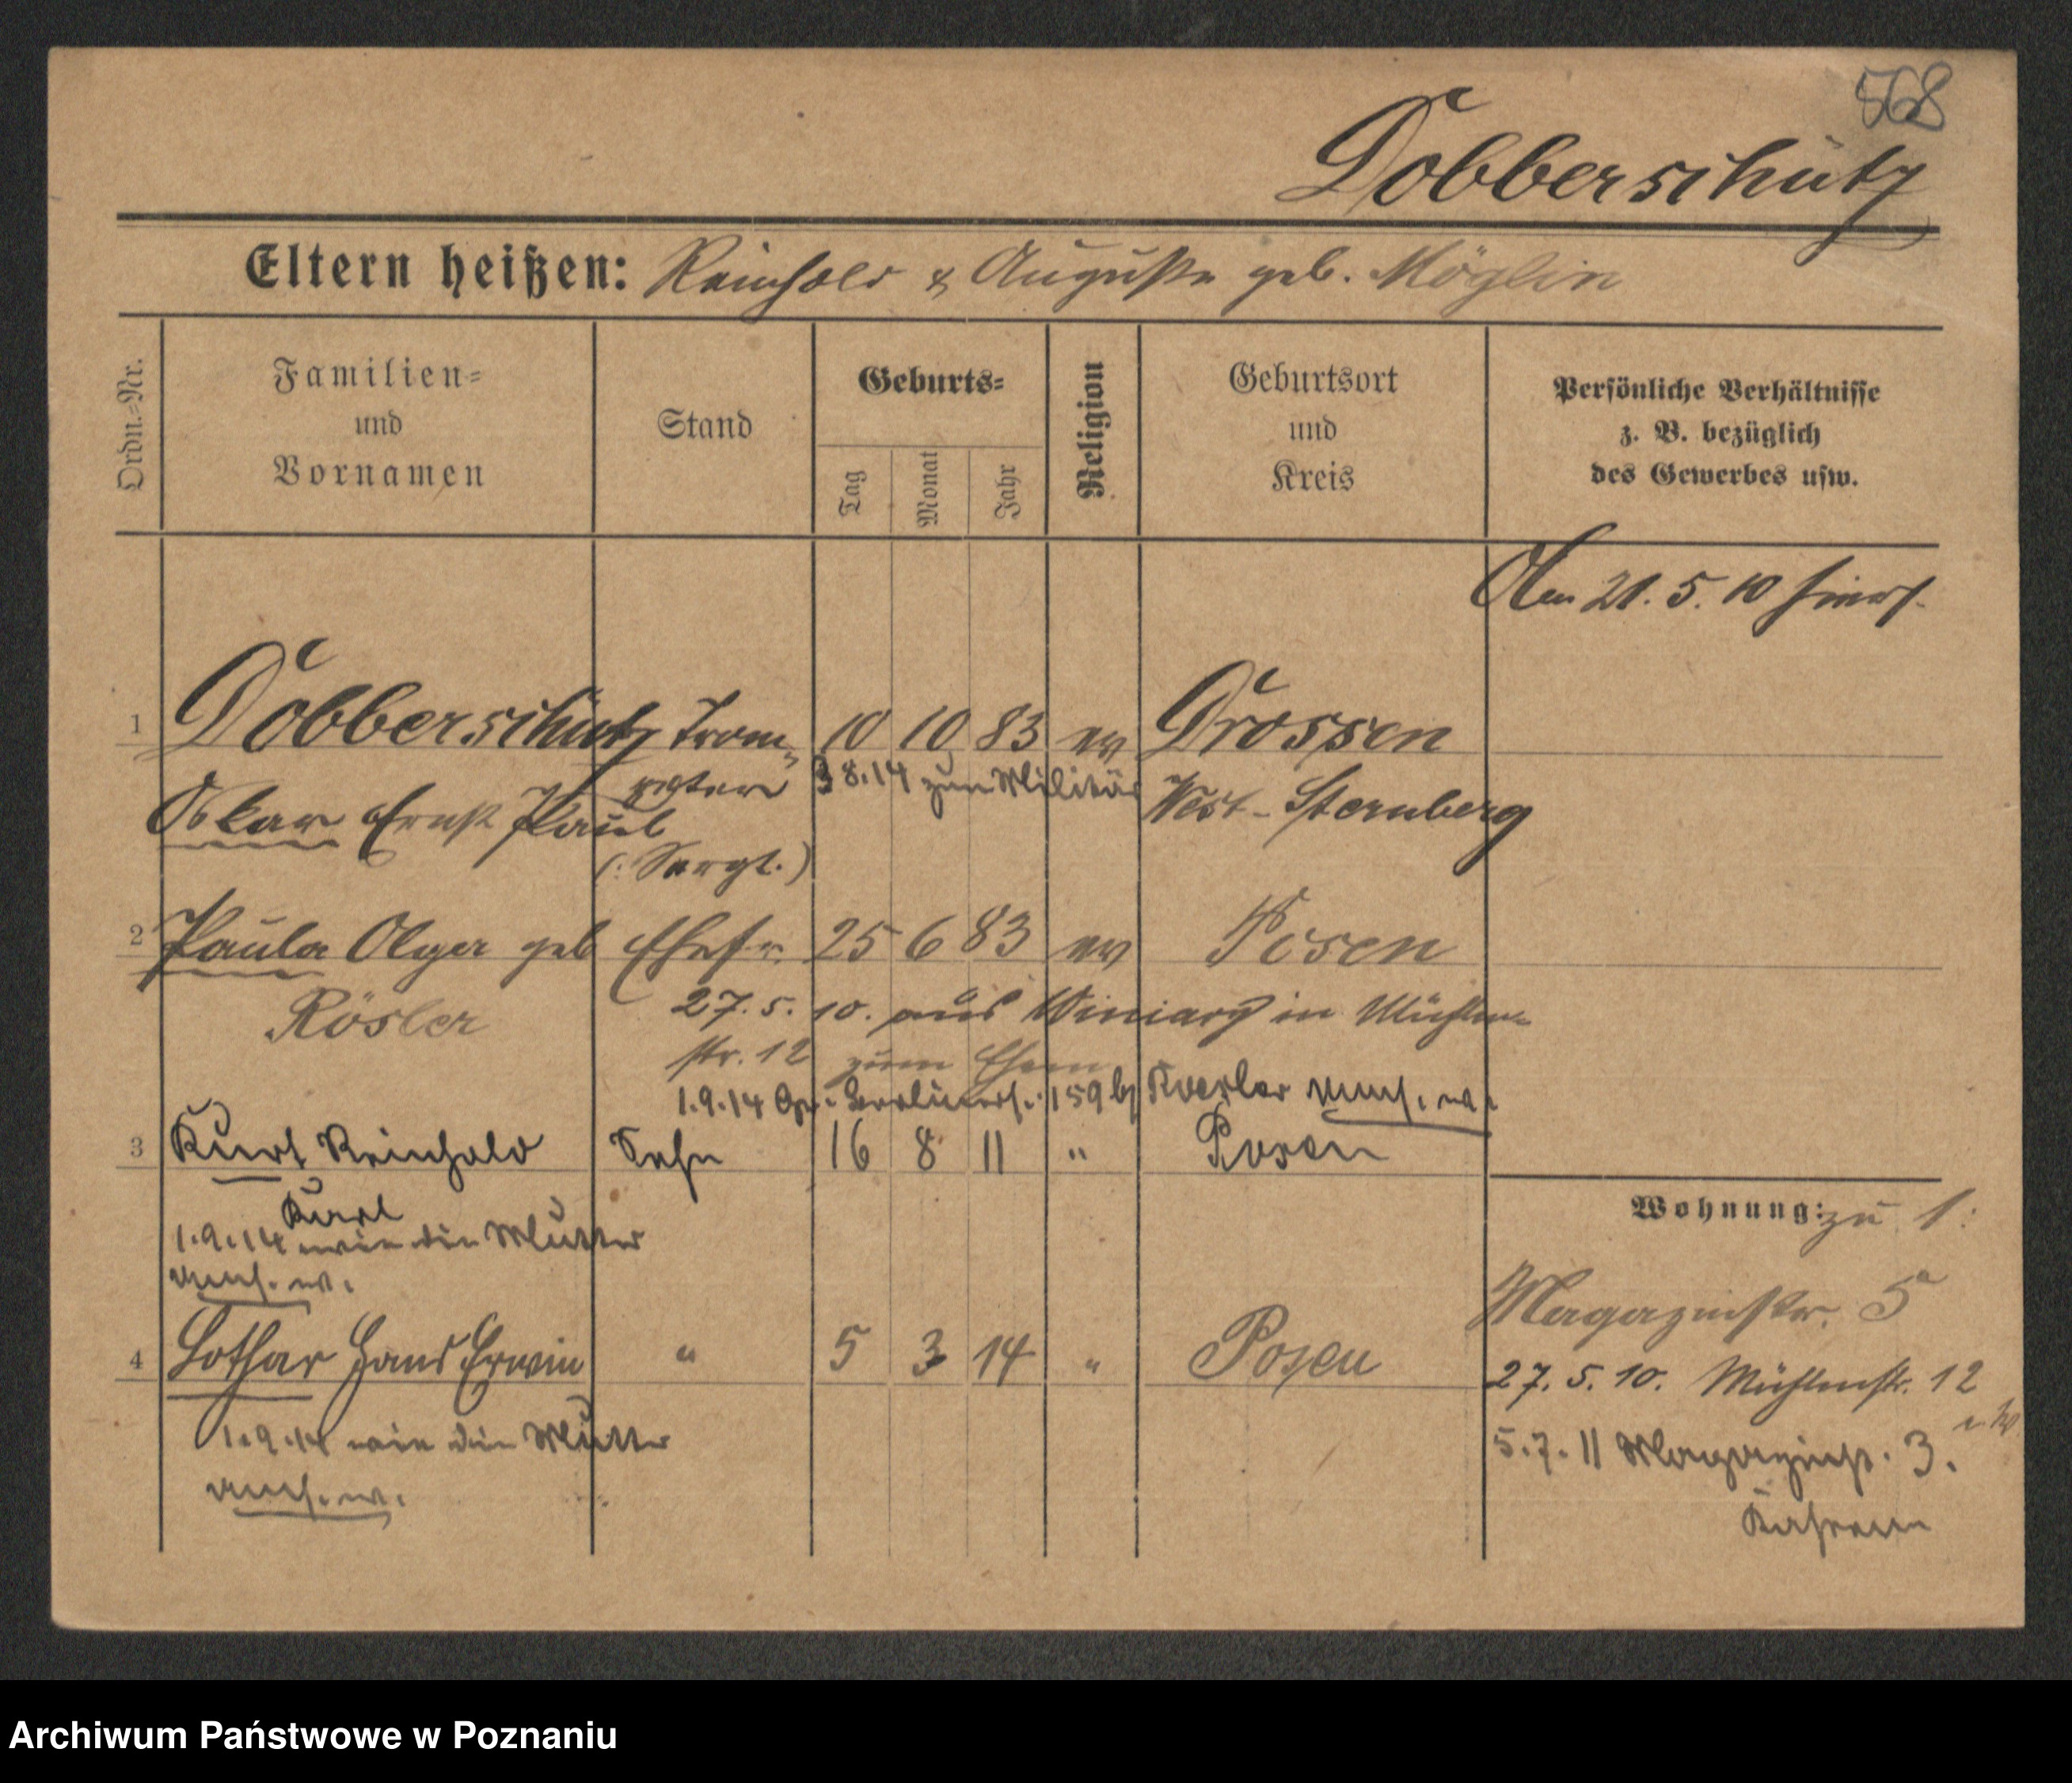 568
Dobberschütz
Eltern heißen: Reinhold & Auguste geb. Möglin
Ordn.-Nr.
Familien=
und
Vornamen
Stand
Geburts=
Tag
Monat
Jahr
Religion
Geburtsort
und
Kreis
Persönliche Verhältnisse
z. B. bezüglich
des Gewerbes usw.
Am 21. 5. 10
1 Dobberschütz Trom= 10 10 83 ev Drossen
peter 3 8.14 zum Militär West-Sternberg
Oskar Ernst Paul
(: Sergt.)
2 Paula Olga geb Ehefr. 25 6 83 ev Posen
Rösler 27. 5. 10. aus Winiary in Mühlen
str. 12 zum Ehem
1.9.14 Gr. Berlinerst. 159 b/
3 Kurt Reinhold Sohn 16 8 11 " Posen
Karl
1.9.14 wie die Mutter
4 Lothar Hans Erwin " 5 3 14 " Posen
1.9.14 wie die Mutter
Wohnung: zu 1:
Magazinstr. 5
27. 5. 10. Mühlenstr. 12
5.7.11 Magazinst. 3.
Kasern
Archiwum Państwowe w Poznaniu